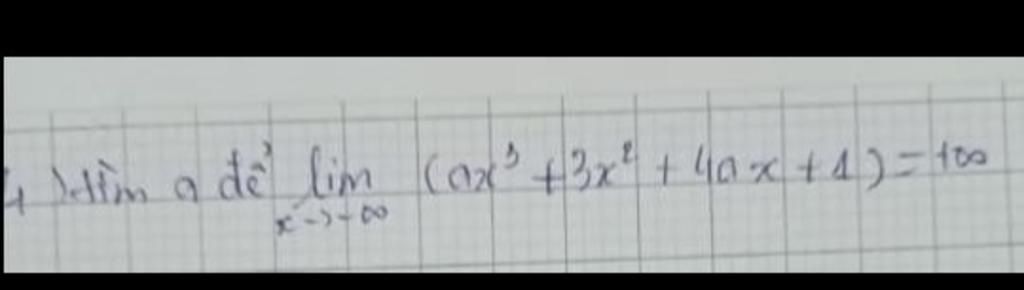 4) tìm a để lim (ax³ + 3x² + 4ax + 1) = +∞
x→-∞